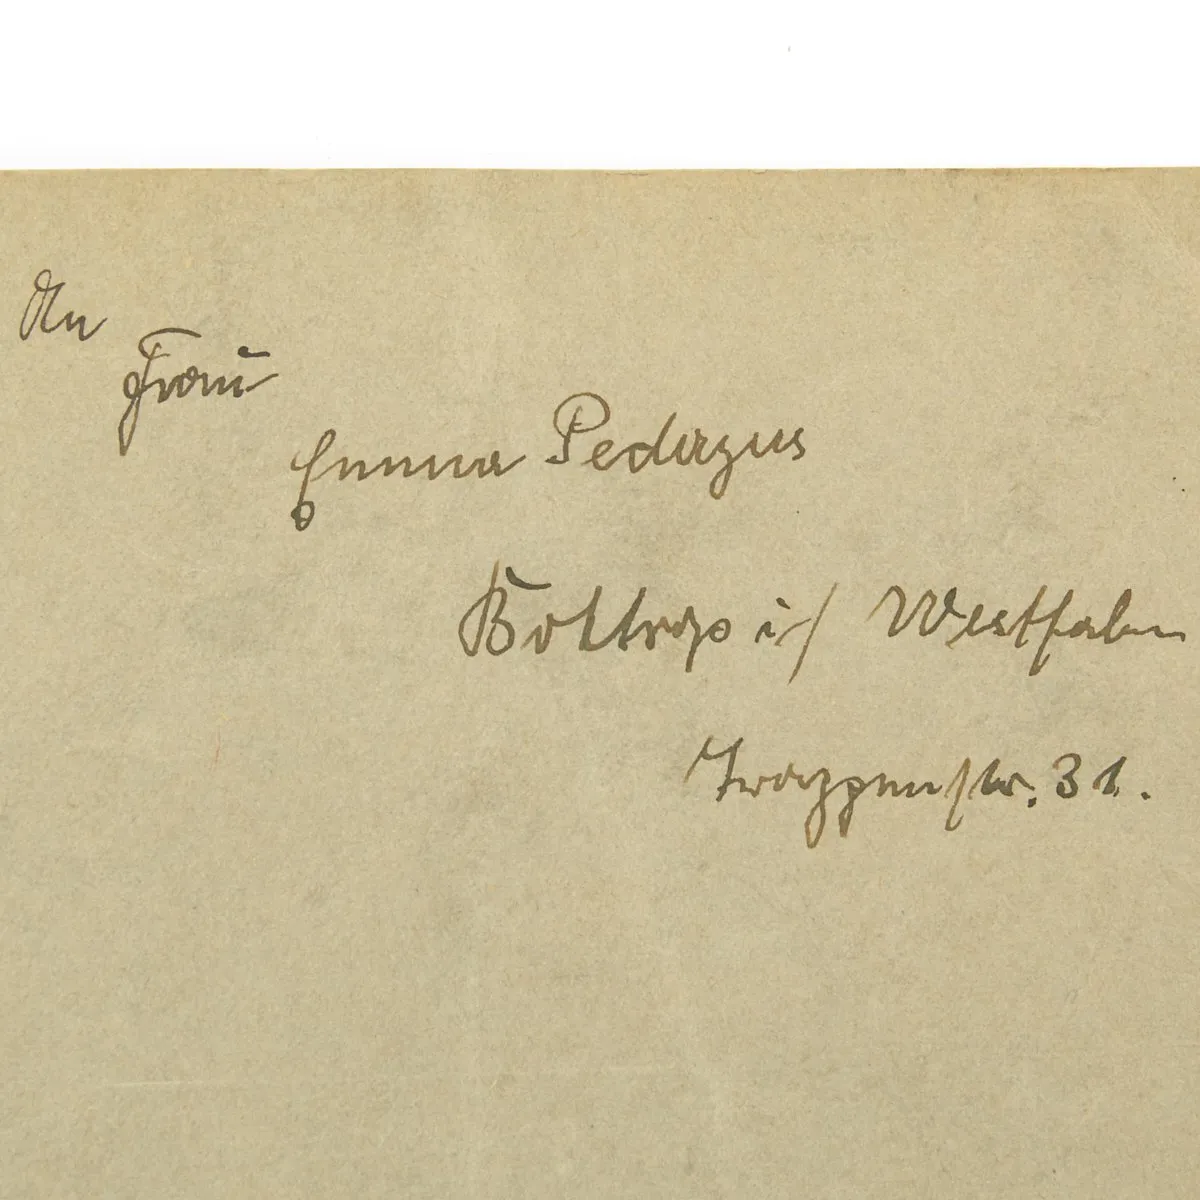 An
Frau
Emma Pederzus
Bottrop i/ Westfalen
Trappenstr. 31.